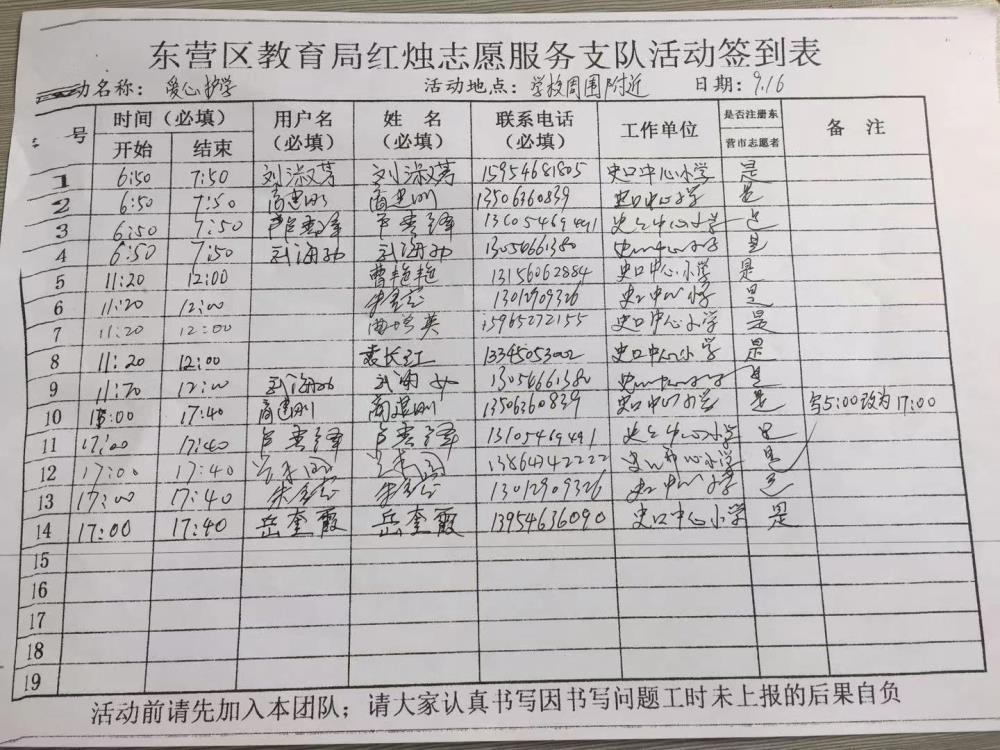 东营区教育局红烛志愿服务支队活动签到表
动名称：爱心护学 活动地点：学校周围附近 日期：9.16
号 时间（必填） 用户名（必填） 姓名（必填） 联系电话（必填） 工作单位 是否注册东营市志愿者 备注
开始 结束
1 6:50 7:50 刘淑芳 刘淑芳 15954681805 史口中心小学 是
2 6:50 7:50 商建刚 商建刚 13506360839 史口中心小学 是
3 6:50 7:50 13605469491 史口中心小学 是
4 6:50 7:50 武海 武海 13056661380 史口中心小学 是
5 11:20 12:00 曹艳艳 13156062884 史口中心小学 是
6 11:20 12:00 13012909326 史口中心小学 是
7 11:20 12:00 英 15965272155 史口中心小学 是
8 11:20 12:00 袁长江 13345053002 史口中心小学 是
9 11:20 12:00 武海 武海 13056661380 史口中心小学 是
10 17:40 商建刚 商建刚 13506360839 史口中心小学 是 写5:00改为17:00
11 17:00 17:40 史口中心小学 是
12 17:00 17:40 史口中心小学 是
13 17:00 17:40 13012909326 史口中心小学 是
14 17:00 17:40 岳奎霞 岳奎霞 13954636090 史口中心小学 是
15
16
17
18
19
活动前请先加入本团队；请大家认真书写因书写问题工时未上报的后果自负